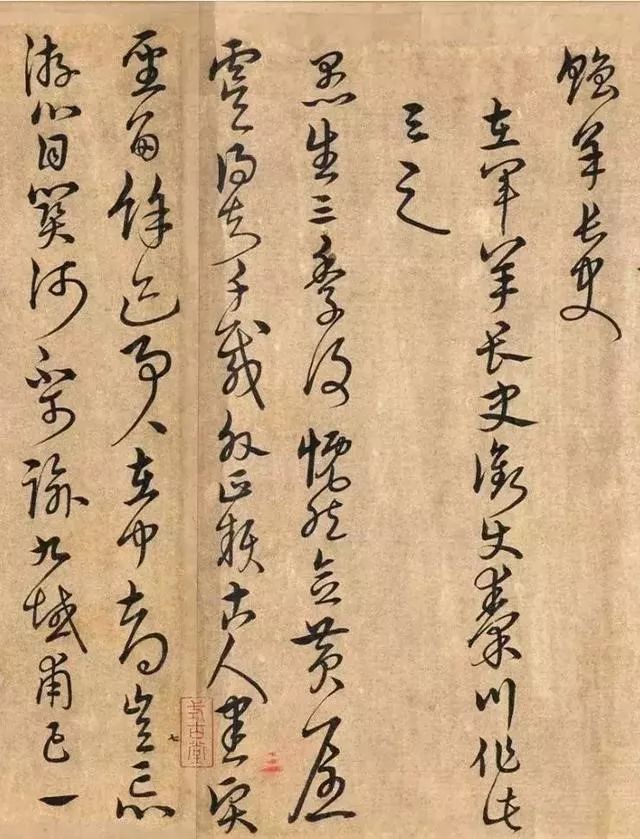 贈羊長史
左軍羊長史銜使秦川作此
與之
愚生三季後慨然念黃
虞得知千載外正賴古人書賢
聖留餘迹事〻在中都豈忘
游心目關河不可踰九域甫已一
式古堂
七